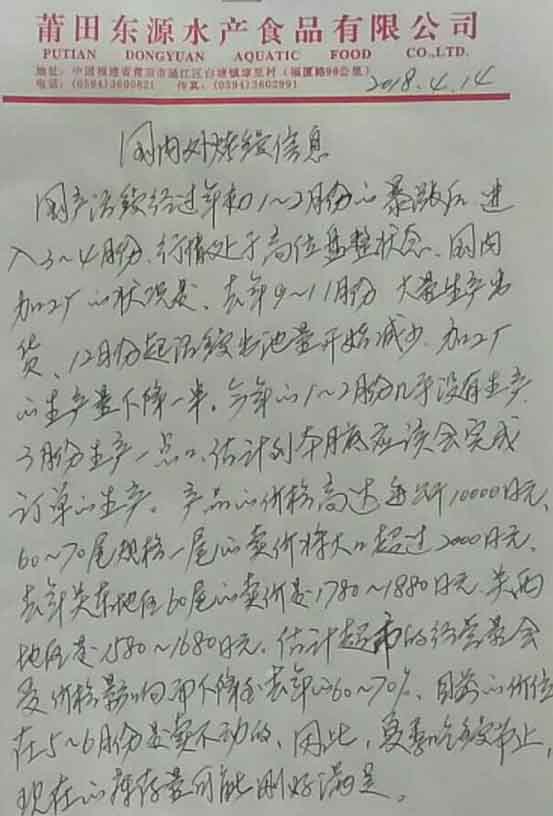 莆田东源水产食品有限公司
PUTIAN DONGYUAN AQUATIC FOOD CO.,LTD.
地址:中国福建省莆田市涵江区白塘镇埭里村(福厦路98公里)
电话:(0594)3600821 传真:(0594)3602991
2018.4.14
国内外烤鳗信息
国产活鳗经过年初1~2月份的暴涨后 进
入3~4月份、行情处于高位盘整状态、国内
加工厂的状况是、去年9~11月份 大量生产出
货、12月份起活鳗出池量开始减少、加工厂
的生产量下降一半。今年的1~2月份几乎没有生产
3月份生产一点、估计到本月底应该会完成
订单的生产。产品的价格高达每公斤10000日元、
60~70尾规格一尾的卖价将大口超过2000日元、
去年关东地区60尾的卖价是1780~1880日元、关西
地区是1580~1680日元、估计超市的经营量会
受价格影响而下降至去年的60~70%、目前的价位
在5~6月份是卖不动的、因此,夏季吃鳗节止,
现在的库存量可能刚好满足。